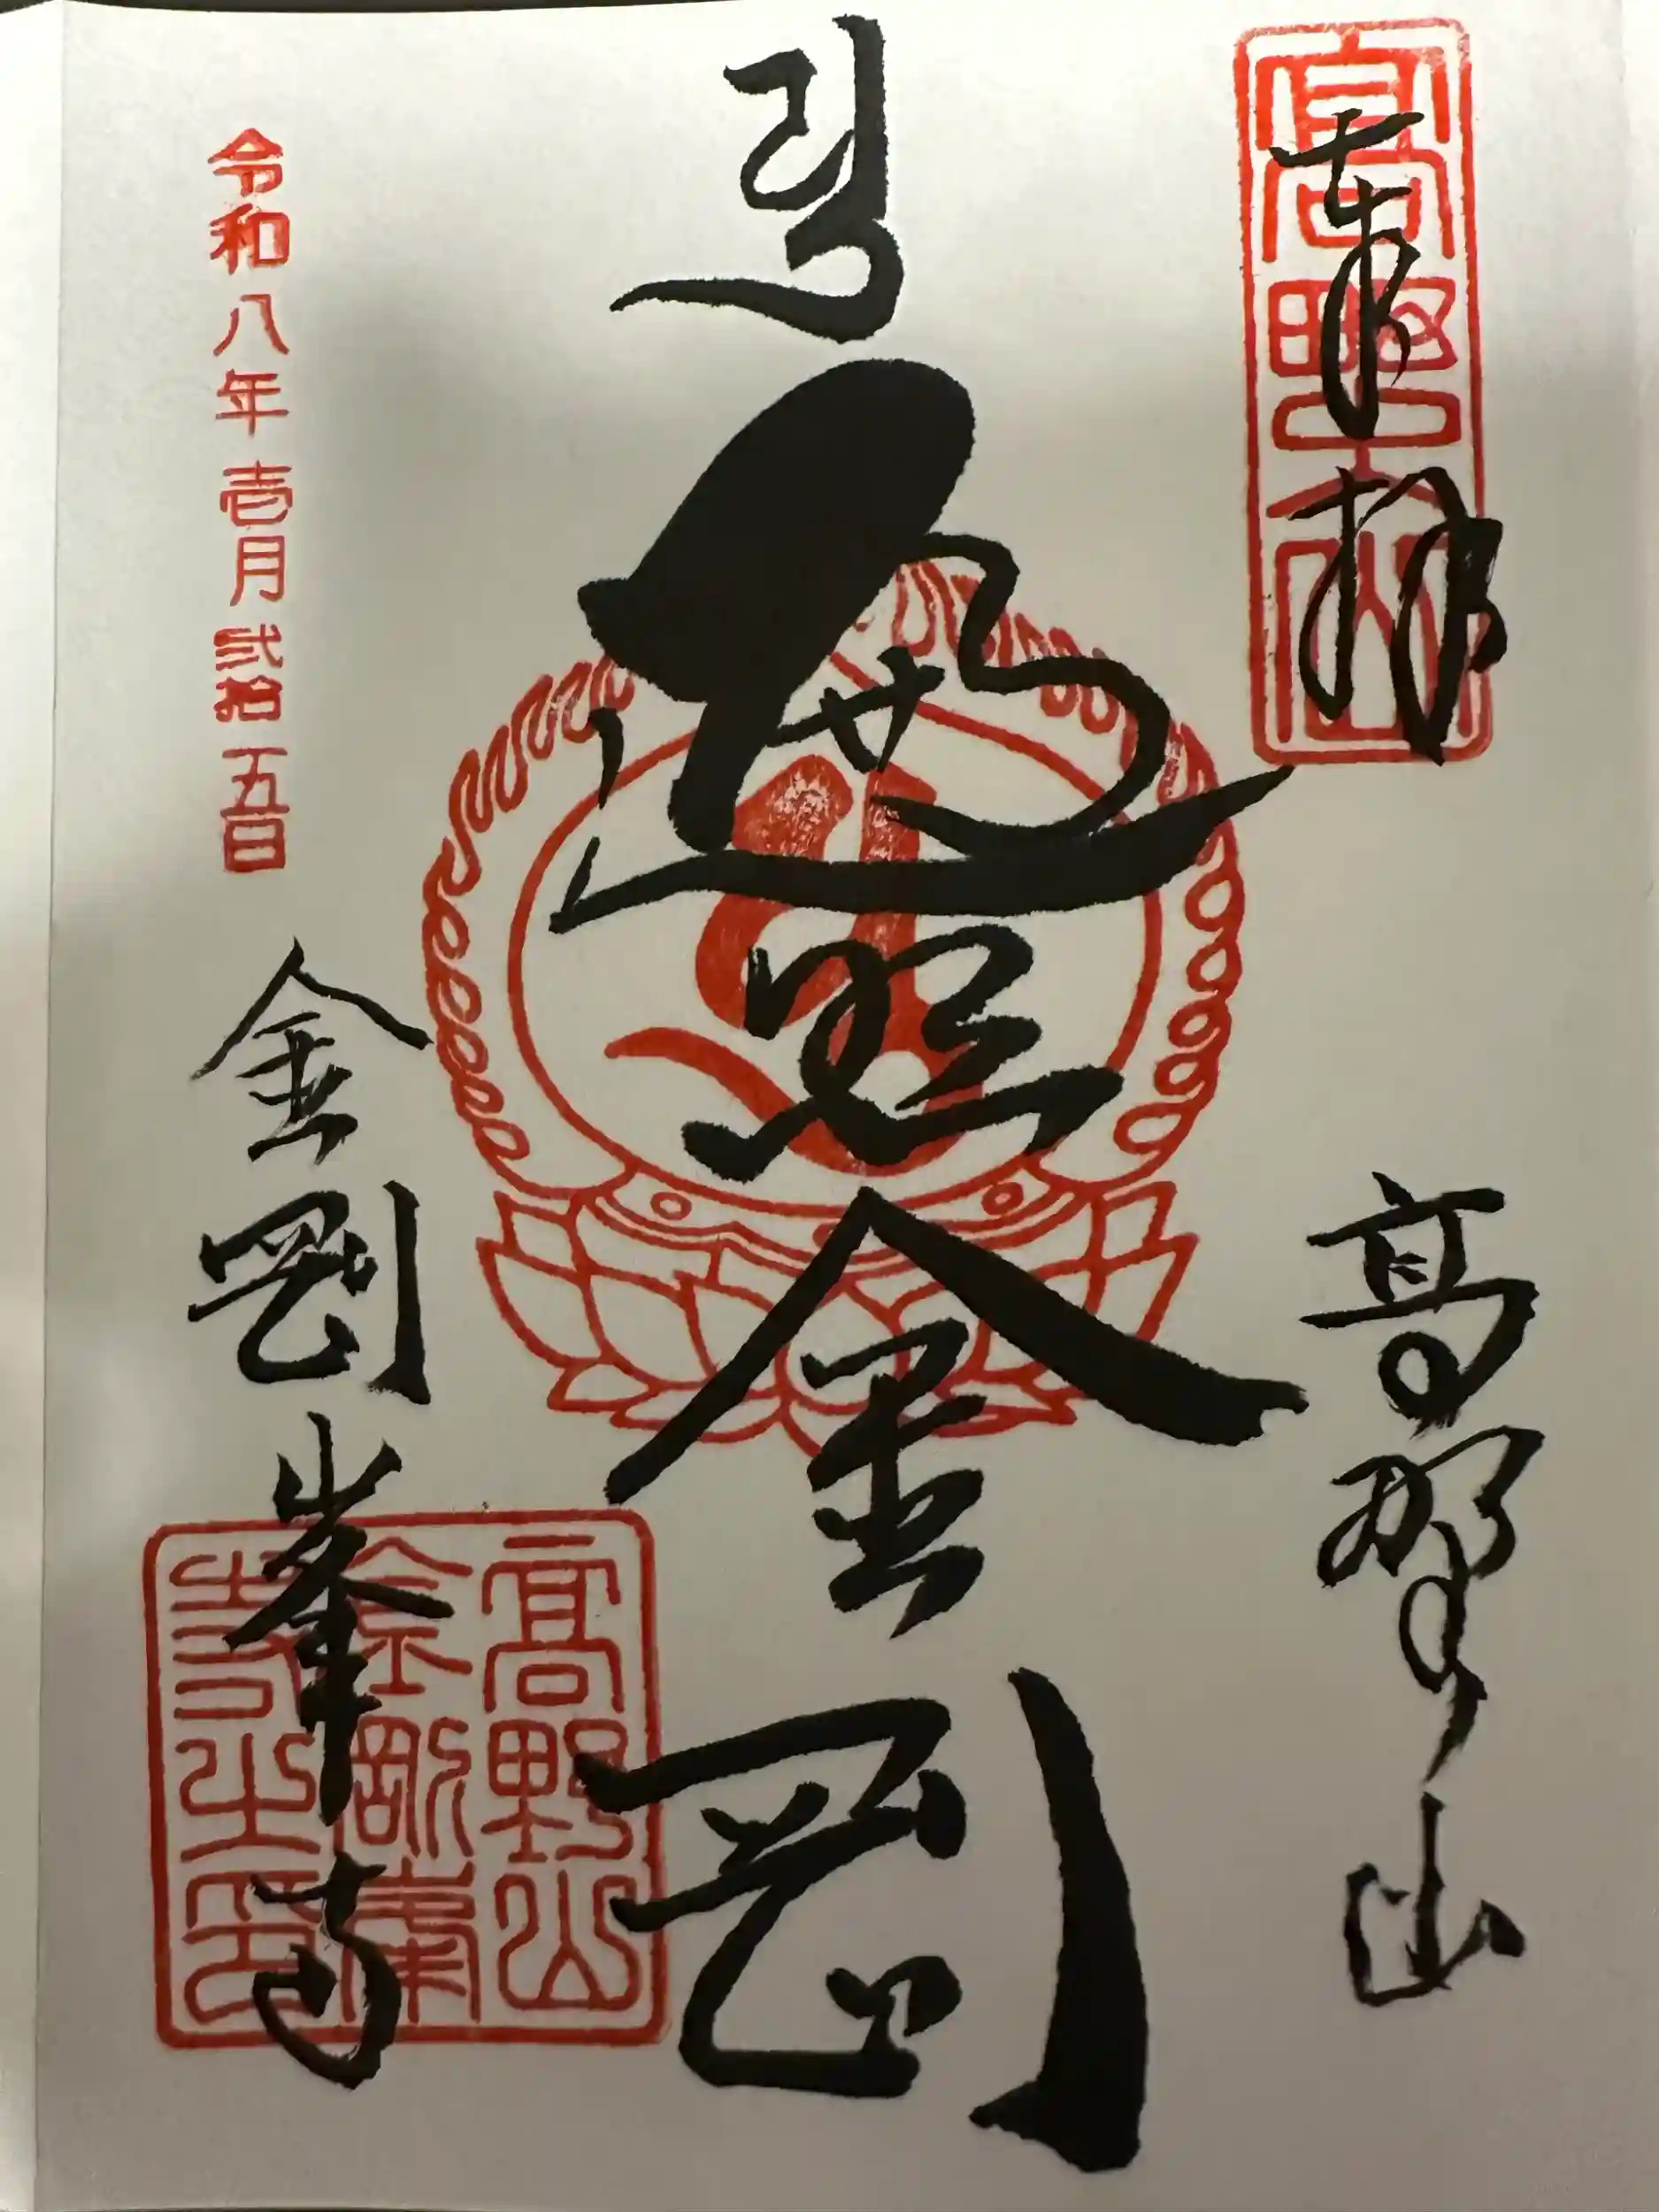 奉拝
高野山
高野山
遍照金剛
令和八年壱月弐拾五日
金剛峯寺
高野山
金剛峯
寺之印